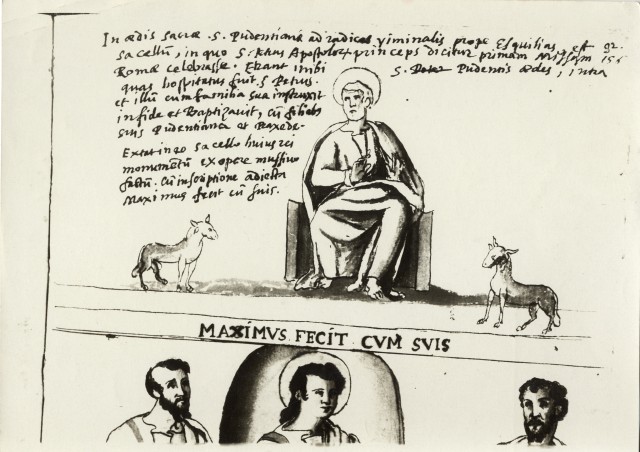 In ædis sacræ .S. Pudentianæ ad radices viminalis prope Esquilias est
sacellum, in quo S. Petrus Apostolor princeps dicitur primam Missam
Romæ celebrasse. Erant inibi S. Pudentis ædes, intra
quas hospitatus fuit S. Petrus.
et illū cum familia sua instruxit
in fide et Baptizavit, cū filiab
suis Pudentiana et Praxede.
Extat in eo sacello huius rei
monumentū ex opere musivo
factū. Cū inscriptione adiecta
Maximus fecit cū suis.
MAXIMVS FECIT CVM SVIS